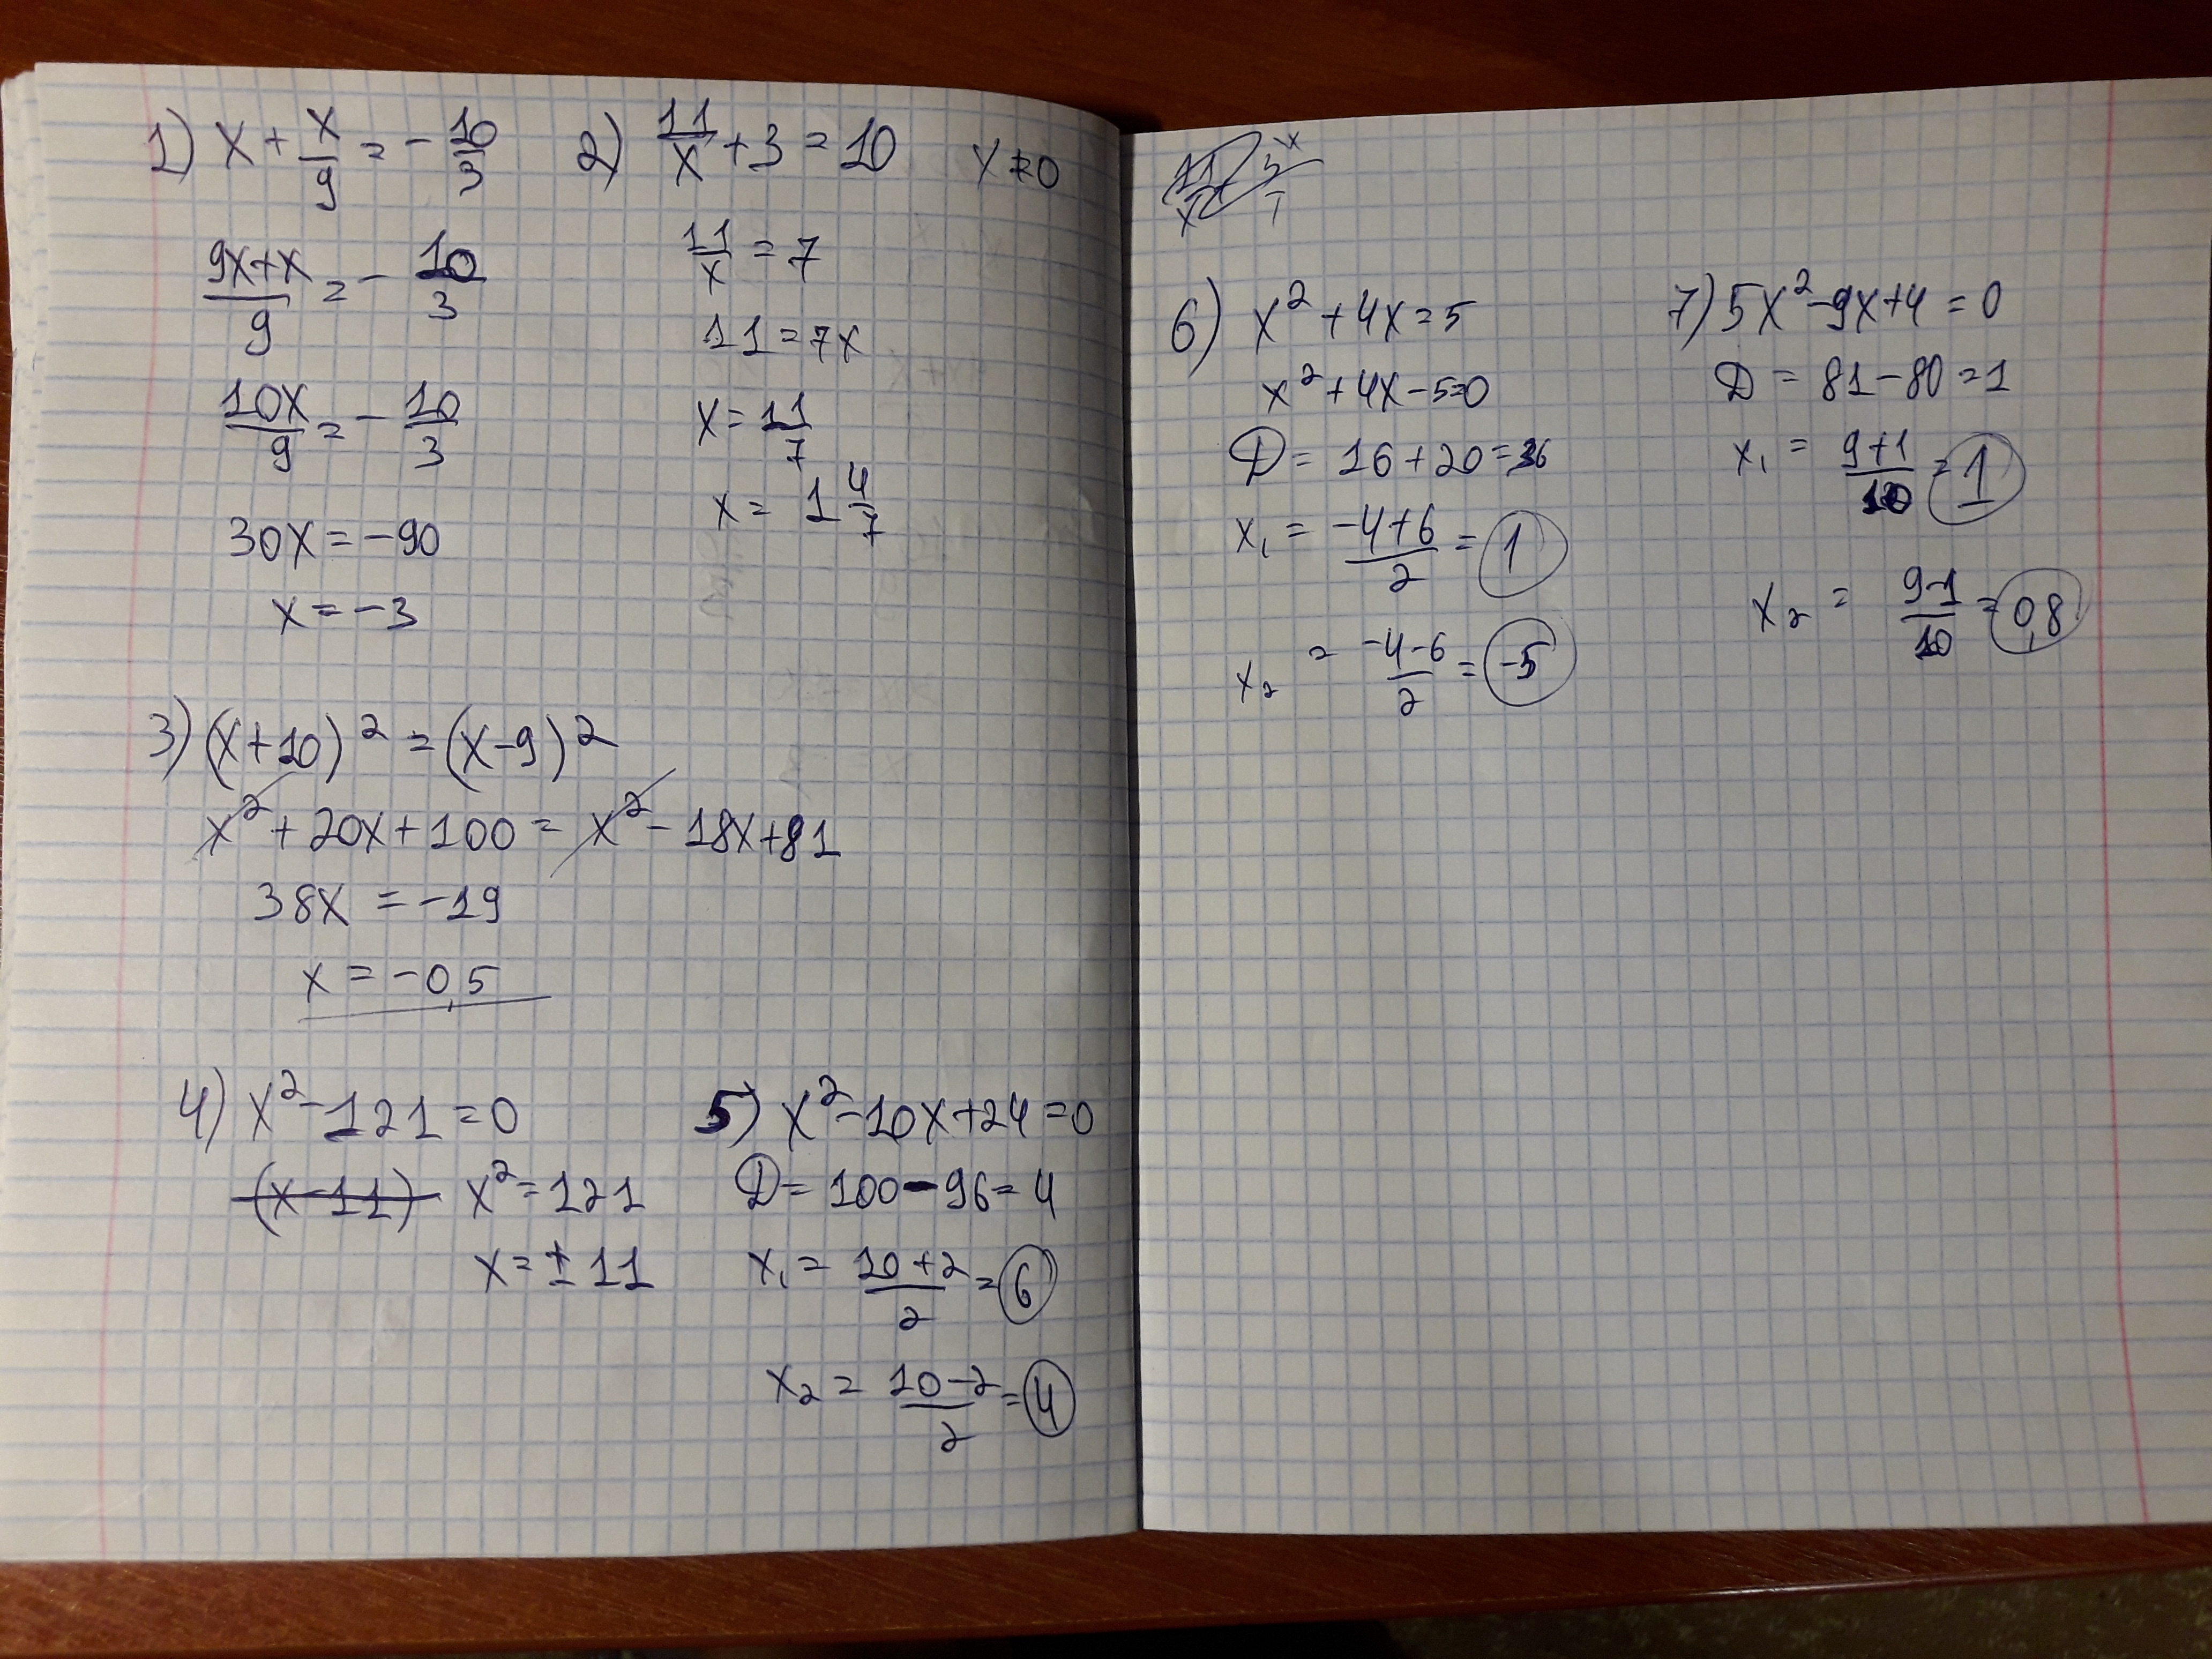 1) x + x/9 = - 10/3
(9x+x)/9 = - 10/3
10x/9 = - 10/3
30x = -90
x = -3
2) 11/x + 3 = 10 x ≠ 0
11/x = 7
11 = 7x
x = 11/7
x = 1 4/7
3) (x+10)² = (x-9)²
x² + 20x + 100 = x² - 18x + 81
38x = -19
x = -0,5
4) x² - 121 = 0
(x-11) x² = 121
x = ± 11
5) x² - 10x + 24 = 0
D = 100 - 96 = 4
x₁ = (10+2)/2 = 6
x₂ = (10-2)/2 = 4
6) x² + 4x = 5
x² + 4x - 5 = 0
D = 16 + 20 = 36
x₁ = (-4+6)/2 = 1
x₂ = (-4-6)/2 = -5
7) 5x² - 9x + 4 = 0
D = 81 - 80 = 1
x₁ = (9+1)/10 = 1
x₂ = (9-1)/10 = 0,8